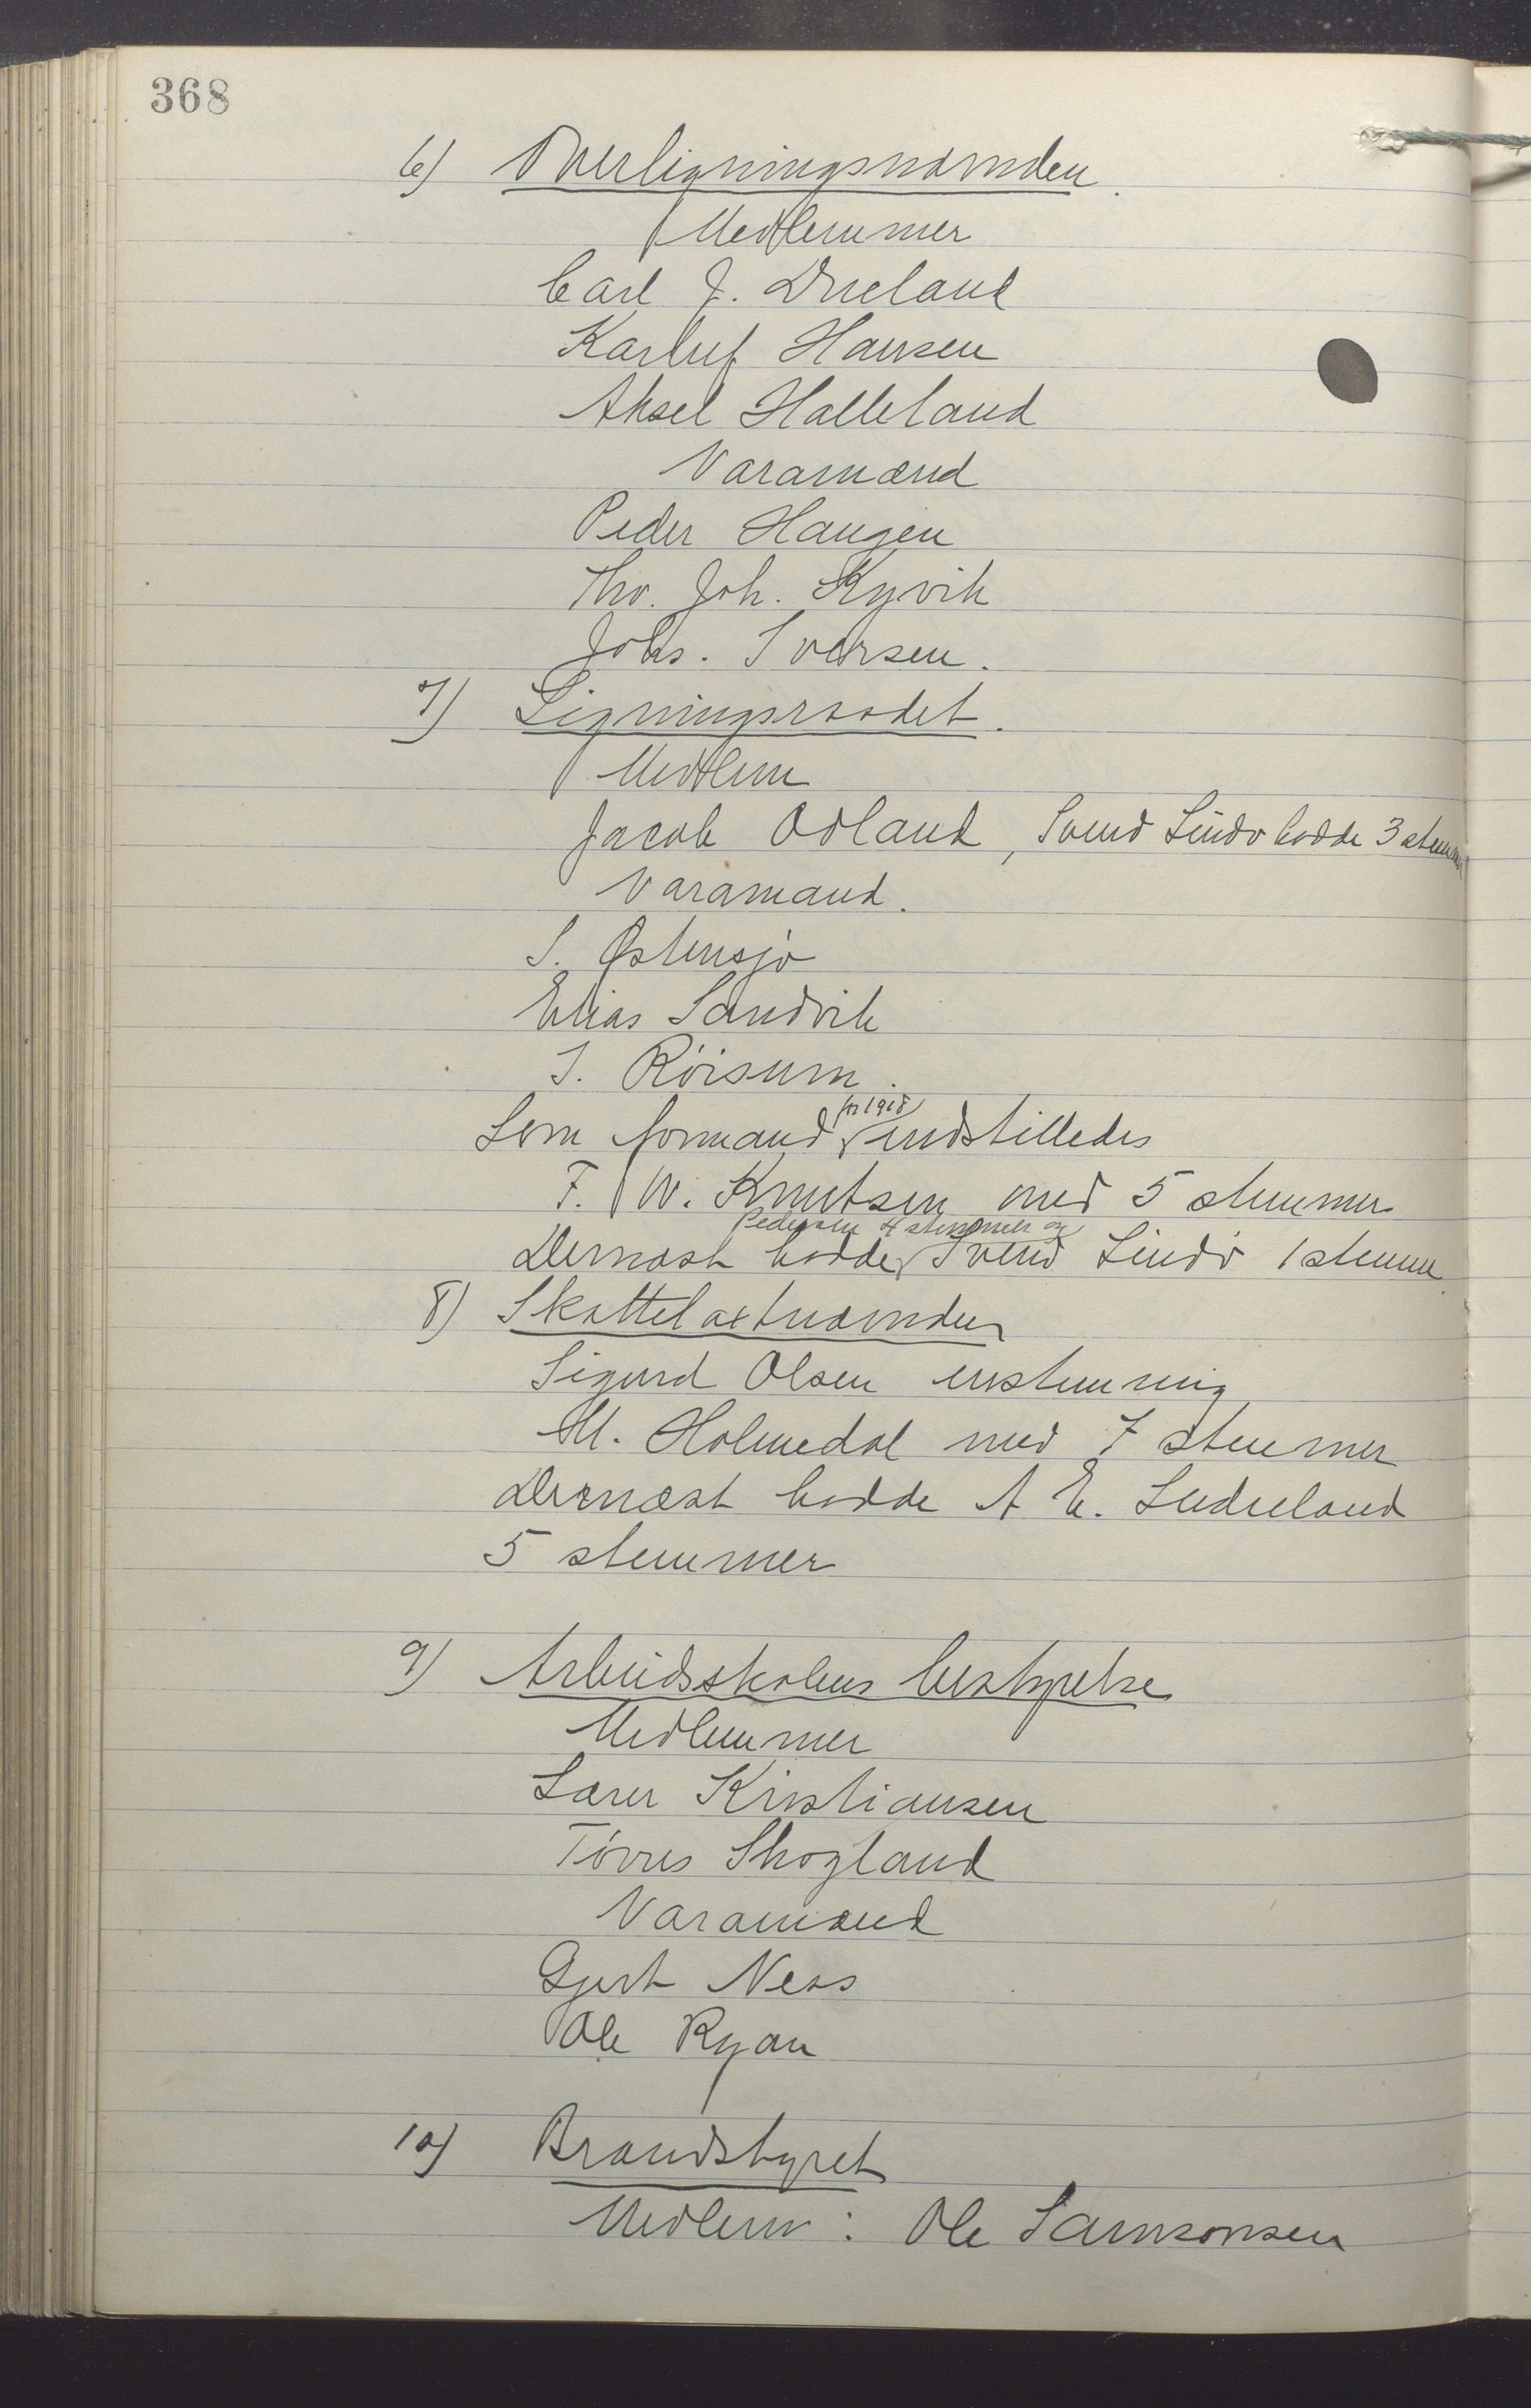 368
6) Overligningsnævnden.
Medlemmer
Carl J. Dueland
Karluf Hansen
Aksel Halleland
Varamænd
Peder Haugen
Thv. Joh. Kyvik
Johs. Iversen.
7) Ligningsraadet.
Medlem
Jacob Odland, Svend Lindø hadde 3 stemmer
Varamand.
S. Østensjø
Elias Sandvik
I. Röisum.
for 1918
Som formand indstilledes
F. W. Knutsen med 5 stemmer
Pedersen 4 stemmer og
Dernæst hadde Svend Lindø 1 stemme.
8) Skattetaxtnævnden
Sigurd Olsen enstemmig
M. Holmedal med 7 stemmer
Dernæst hadde A E.
5 stemmer
9) Arbeidsskolens bestyrelse
Medlemmer
Lærer Kristiansen
Tørres Skogland
Varamænd
Gjert Ness
Ole Ryan
10) Brandstyret
Medlem: Ole Samsonsen